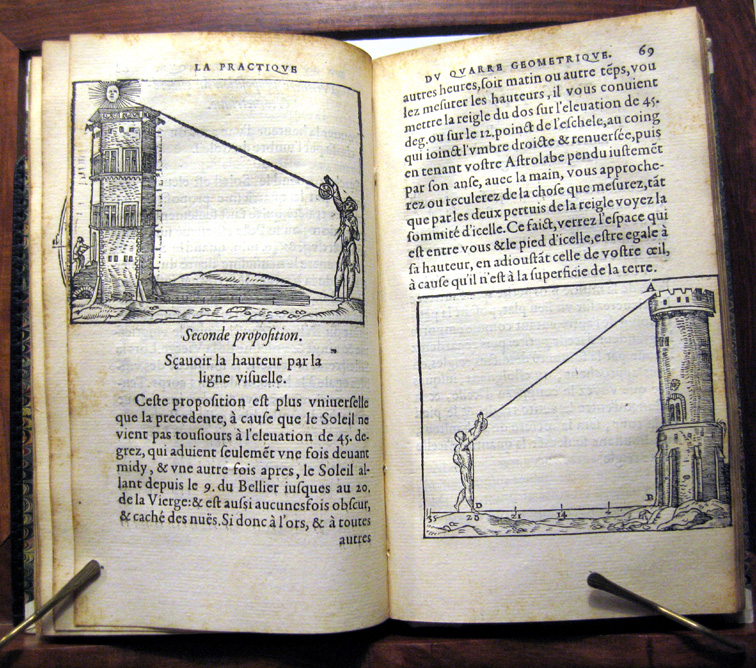 LA PRACTIQVE
Seconde proposition.
Sçauoir la hauteur par la
ligne visuelle.
Ceste proposition est plus vniuerselle
que la precedente, à cause que le Soleil ne
vient pas tousiours à l'eleuation de 45. de-
grez, qui aduient seulemẽt vne fois deuant
midy, & vne autre fois apres, le Soleil al-
lant depuis le 9. du Bellier iusques au 20.
de la Vierge: & est aussi aucunesfois obscur,
& caché des nuës. Si donc à l'ors, & à toutes
autres
DV QVARRE GEOMETRIQVE. 69
autres heures, soit matin ou autre tẽps, vou
lez mesurer les hauteurs, il vous conuient
mettre la reigle du dos sur l'eleuation de 45.
deg. ou sur le 12. poinct de l'eschele, au coing
qui ioinct l'vmbre droicte & renuersée, puis
en tenant vostre Astrolabe pendu iustemẽt
par son anse, auec la main, vous approche-
rez ou reculerez de la chose que mesurez, tãt
que par les deux pertuis de la reigle voyez la
sommité d'icelle. Ce faict, verrez l'espace qui
est entre vous & le pied d'icelle, estre egale à
sa hauteur, en adioustãt celle de vostre œil,
à cause qu'il n'est à la superficie de la terre.
A
D B
35 28 21 14